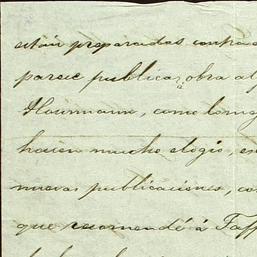 están preparadas contra
parece publicar obra al
Hausmann, como
hacen mucho elogio, es
nuevas publicaciones, co
que recomendé á Taff